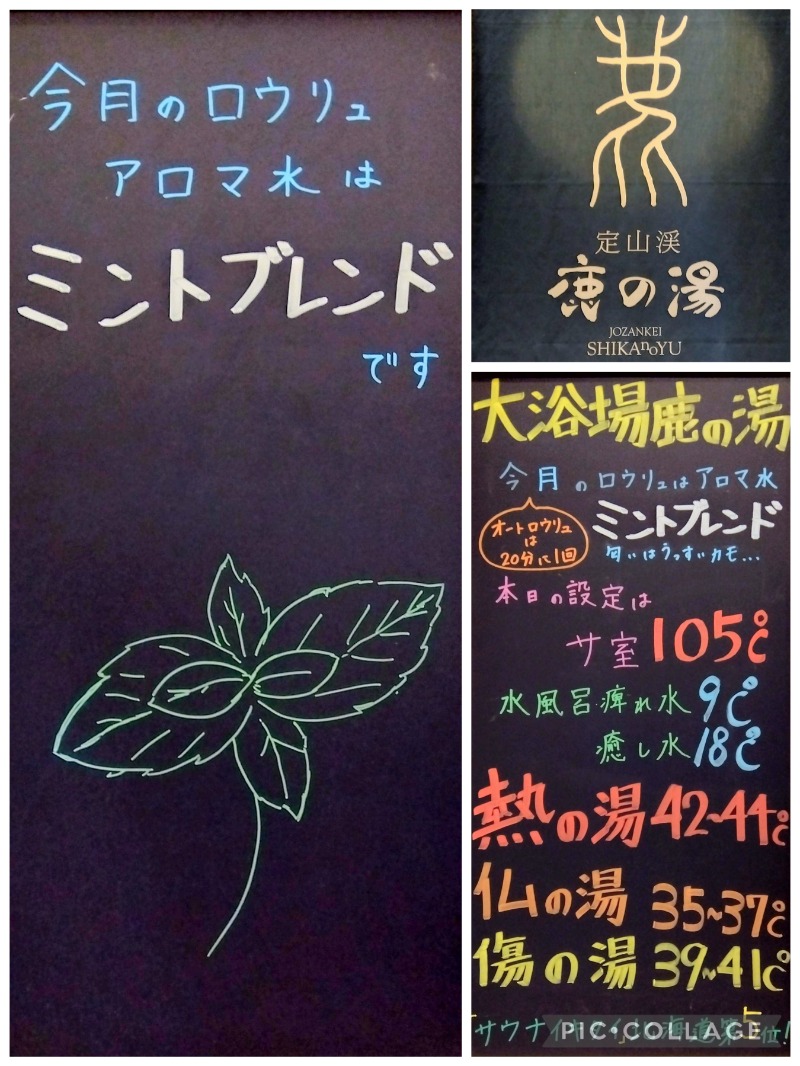 今月のロウリュ
アロマ水は
ミントブレンド
です
定山渓
鹿の湯
JOZANKEI
SHIKAnoYU
大浴場鹿の湯
今月のロウリュはアロマ水
オートロウリュ
は
20分に1回
ミントブレンド
匂いはうっすいカモ...
本日の設定は
サ室 105℃
水風呂痺れ水 9℃
癒し水 18℃
熱の湯 42~44℃
仏の湯 35~37℃
傷の湯 39~41℃
サウナイキタイ北海道第5位!
PIC•COLLAGE